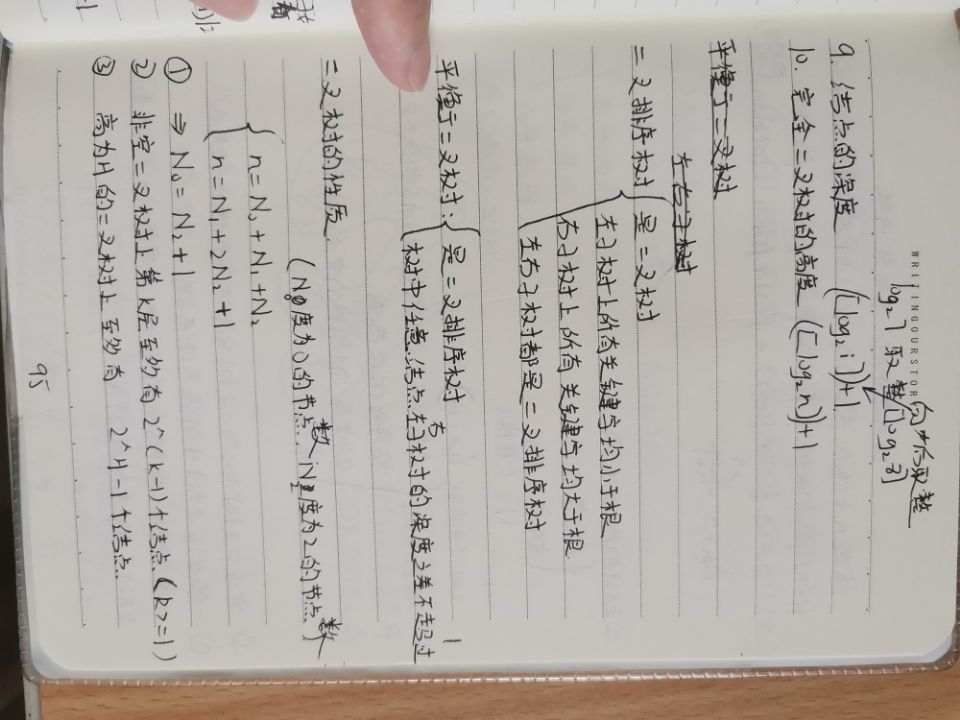 WRITINGOURSTOR
向下取整
log₂7 取整[log₂8]
9. 结点的深度 (⌊log₂i⌋)+1
10. 完全二叉树的高度 (⌊log₂n⌋)+1
平衡于二叉树
左右子树
二叉排序树 { 是二叉树
左子树上所有关键字均小于根
右子树上所有关键字均大于根
左右子树都是二叉排序树
平衡于二叉树: { 是二叉排序树
树中任意结点左右子树的深度之差不超过1
二叉树的性质
(N0度为0的节点数, N2度为2的节点数
{ n=N₀+N₁+N₂
n=N₁+2N₂+1
① ⇒ N₀=N₂+1
② 非空二叉树上第k层至多有2^(k-1)个结点 (k>=1)
③ 高为H的二叉树上至多有 2^H-1个结点
95